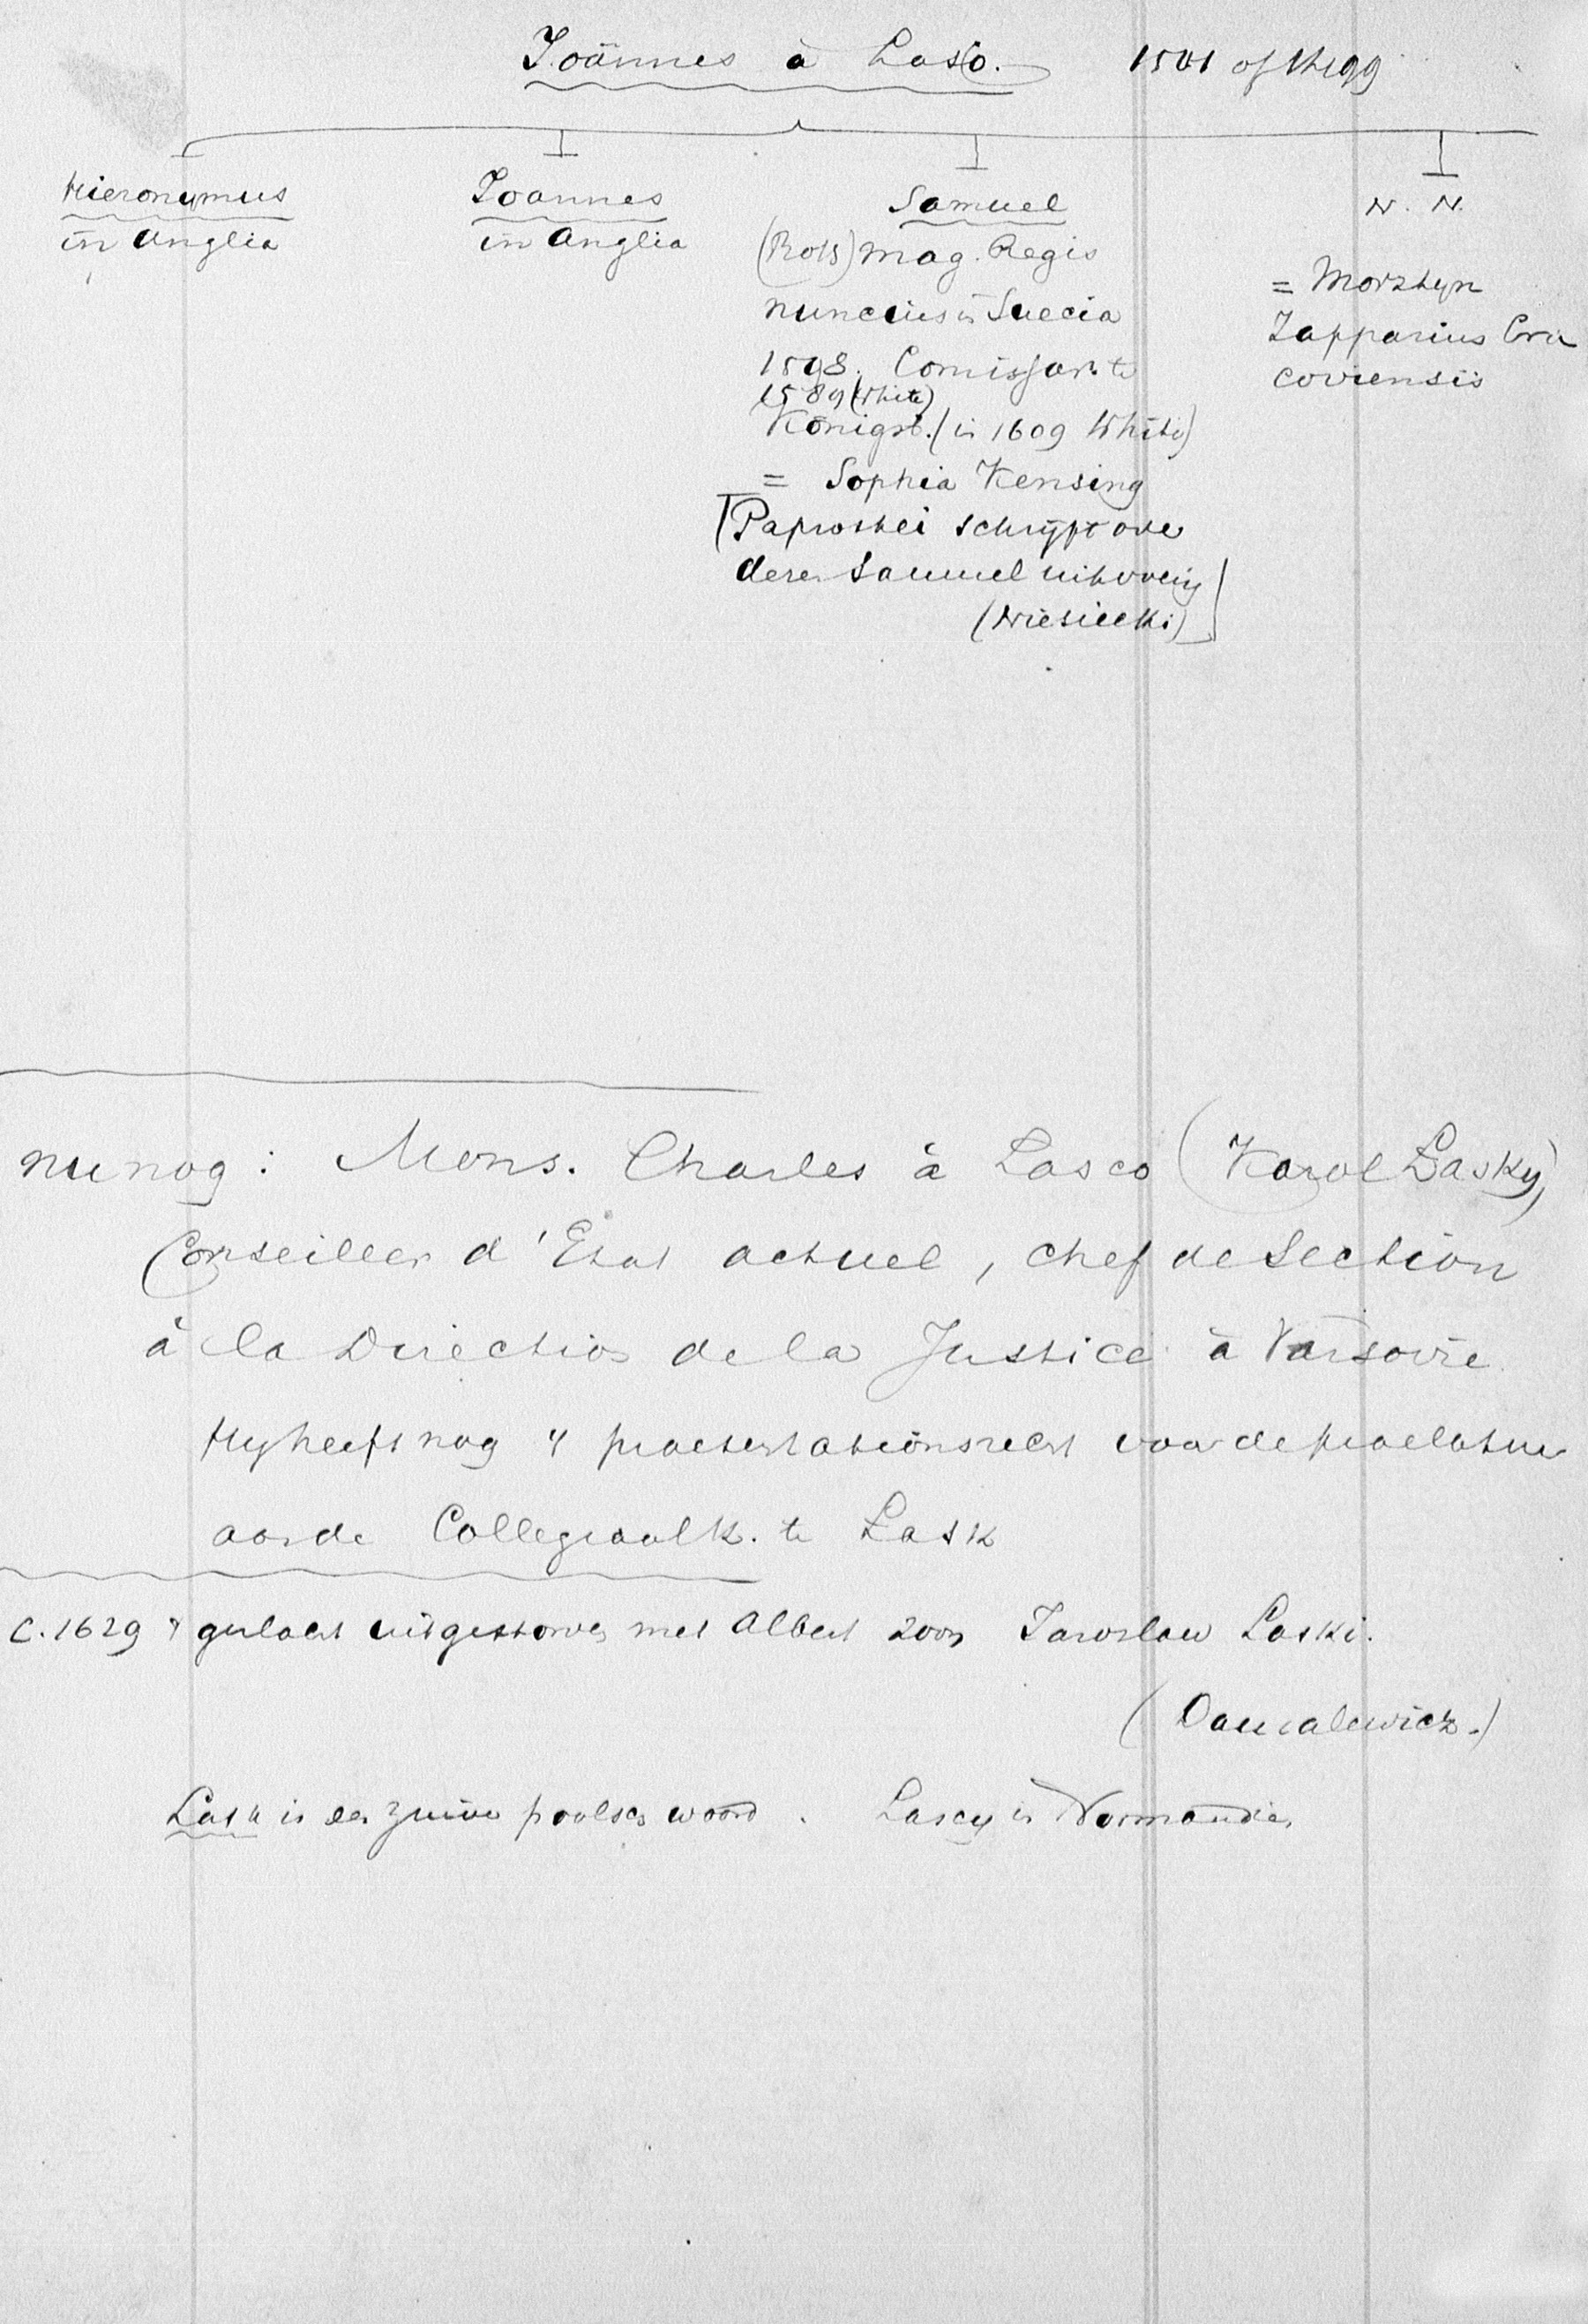 Joännes à Lasco. 1501 of 1499
Hieronymus
in Anglia
Joannes
in Anglia
Samuel
(Rots) mag. Regis
nuncius in Suecia
1598. Comissar. te
1589 (White)
Königsb. (in 1609 White)
= Sophia Kensing
[Paproskei schrijft over
deze Samuel uitvoerig
(Niesiecki)]
N. N.
= Morztyn
Zupparius Cra
coviensis
nu nog: Mons. Charles à Lasco (Karol Łasky)
Conseiller d'Etat actuel, chef de Section
à la Direction de la Justice à Varsovie
Hy heeft nog 't praesentationsrecht voor de praelatuur
aan de Collegiaalk. te Łask
c. 1629 't geslacht uitgestorven met Albert zoon Jaroslaw Laski.
(Damalewicz.)
Lask is een zuiver poolsch woord. Lascy in Normandie.